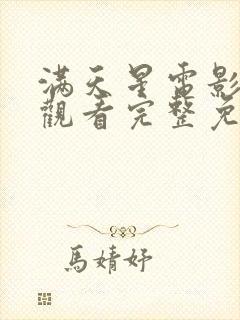 滿天星電影
觀看完整免
馬婧妤